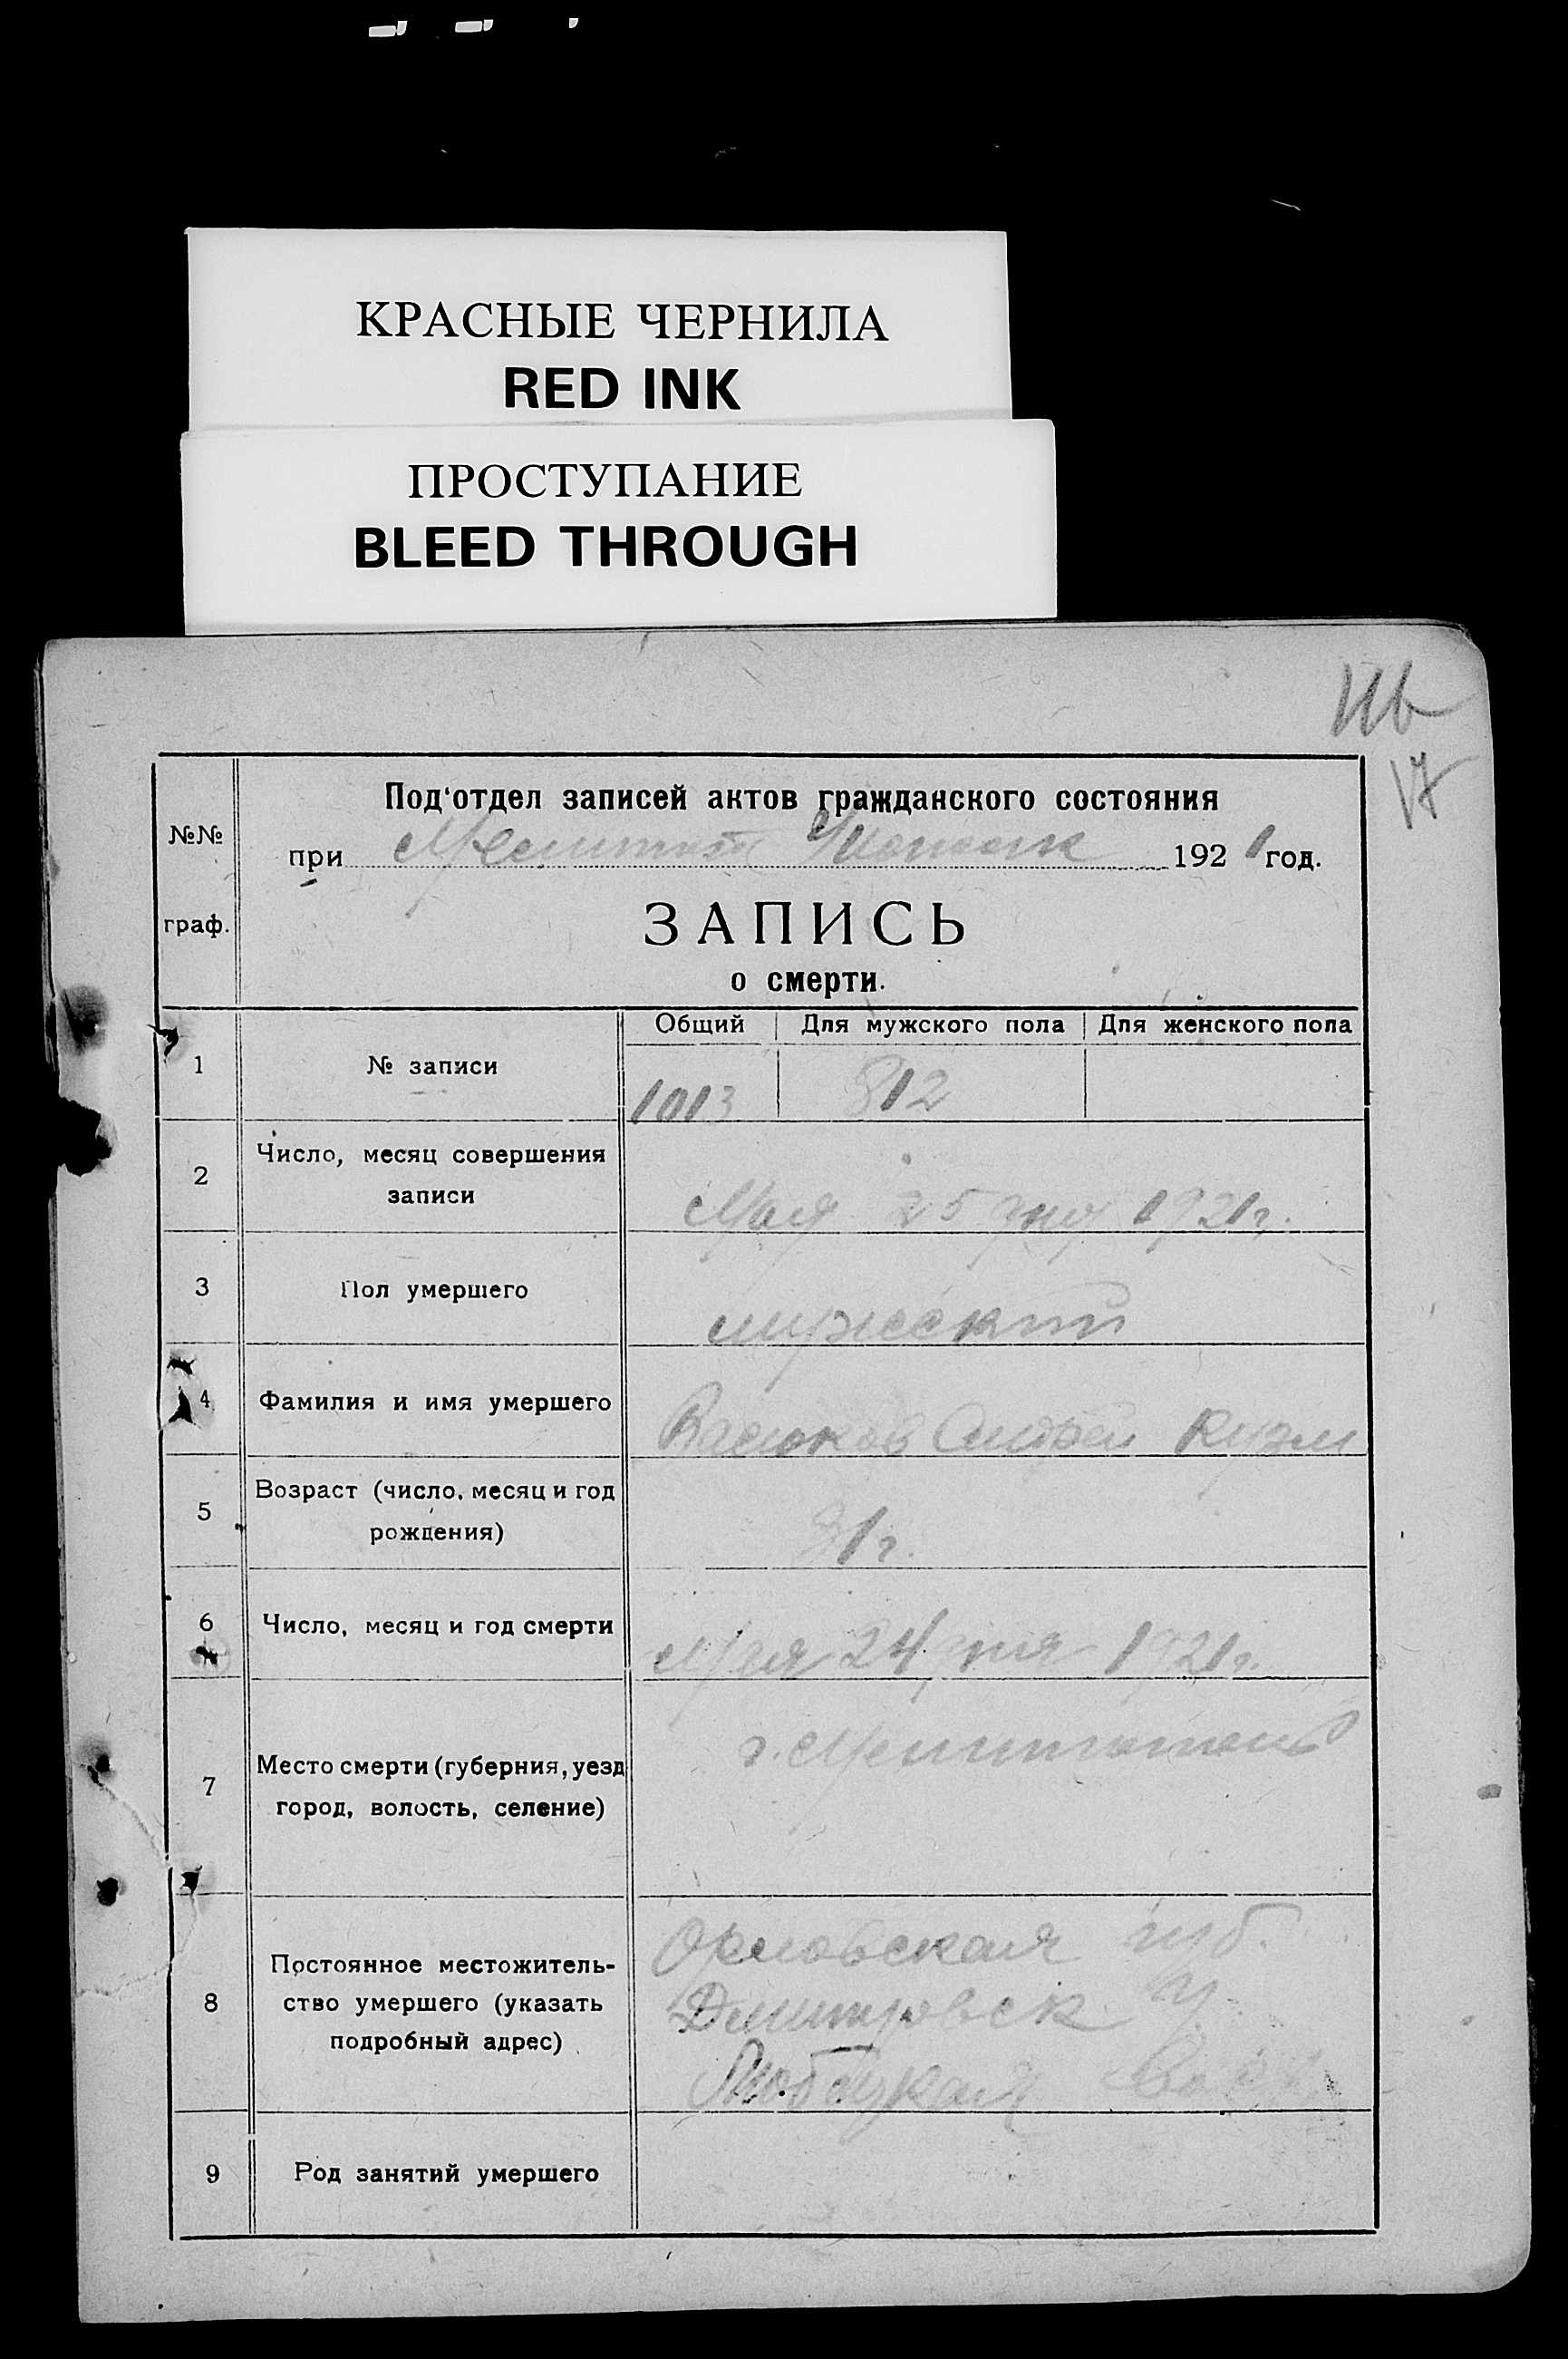 КРАСНЫЕ ЧЕРНИЛА
RED INK
ПРОСТУПАНИЕ
BLEED THROUGH
17
№№ граф.
Под'отдел записей актов гражданского состояния
при 1921 год.
ЗАПИСЬ
о смерти.
Общий Для мужского пола Для женского пола
1 № записи 1013 812
2 Число, месяц совершения
записи
Мая 25 дня 1921 г.
3 Пол умершего мужеский
4 Фамилия и имя умершего Васюков Андрей Кузм
5 Возраст (число, месяц и год
рождения)
31 г.
6 Число, месяц и год смерти Мая 24 дня 1921 г.
7 Место смерти (губерния, уезд
город, волость, селение)
г.
8 Постоянное местожитель-
ство умершего (указать
подробный адрес)
Орловская губ.
Дмитровск у.
9 Род занятий умершего